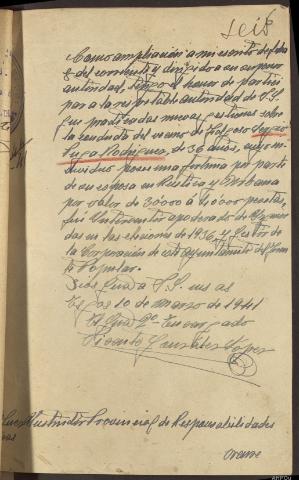 seis
Como ampliación a mi escrito de fecha
8 del corriente y dirigido a su superior
autoridad, tengo el honor de partici
par a la respetable autoridad de S.S.
que practicadas nuevas gestiones sobre
la conducta del vecino de
Puga Rodriguez, de 36 años, cuyo in
dividuo posee una fortuna por parte
de su esposa en Rústica y Urbana
por valor de 30000 a 40000 pesetas,
fué Interventor apoderado de Izquier
das en las elecciones de 1936 y Gestor de
la Corporación de este ayuntamiento del Fren
te Popular.
Dios Guarde a S.S. muchos años
10 de Marzo de 1941
El Gua 2º Encargado
Vicente González López
Juez Instructor Provincial de Responsabilidades
Orense